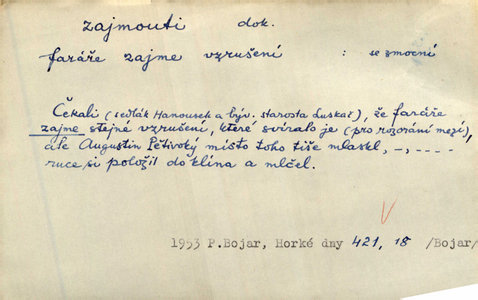 zajmouti dok.
faráře zajme vzrušení : se zmocní
Čekali (sedlák Hanousek a býv. starosta Luskač), že faráře
zajme stejné vzrušení, které svíralo je (pro rozorání mezí),
ale Augustin Pětivoký místo toho tiše mlaskl, –, - - - -
ruce si položil do klína a mlčel.
1953 P.Bojar, Horké dny 421, 18 /Bojar/